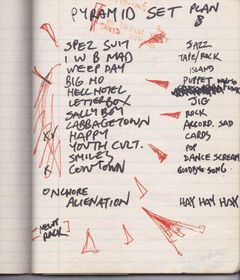 PYRAMID SET PLAN
8
SPEZ SUIT JAZZ
I W B MAD TAPE/ROCK
WEEP DAY ISLAND
X BIG MO PUPPET
HELL HOTEL
LETTERBOX JIG
SALLY BOY ROCK
CABBAGETOWN ACCORD. SAD
XX HAPPY CARDS
YOUTH CULT. POP
SMILES DANCE SCREAM
X COWTOWN GOODBYE SONG.
ONCHORE
ALIENATION HAY HAY HAY